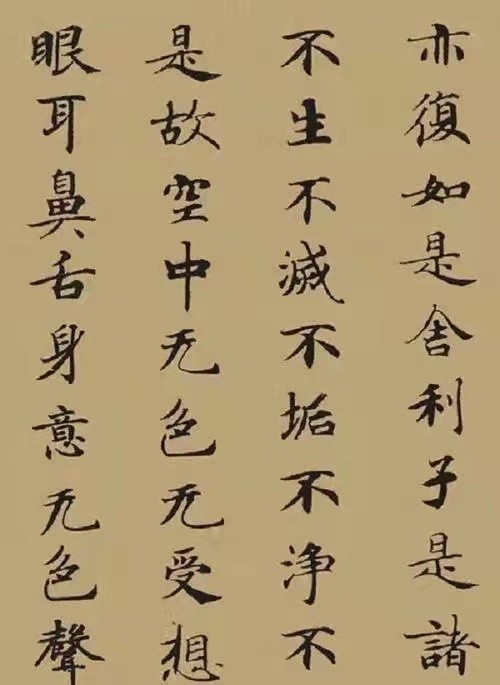 亦復如是舍利子是諸
不生不滅不垢不浄不
是故空中无色无受想
眼耳鼻舌身意无色聲